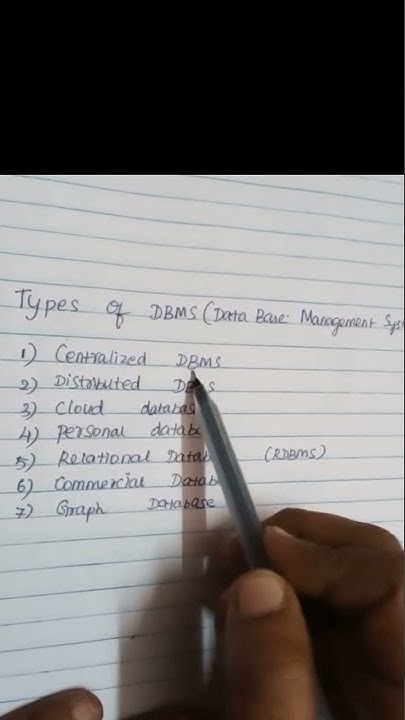 Types of DBMS (Data Base Management Sys
1) Centralized DBMS
2) Distributed DBMS
3) Cloud databas
4) personal datab
5) Relational Datab (RDBMS)
6) Commercial Datab
7) Graph Database